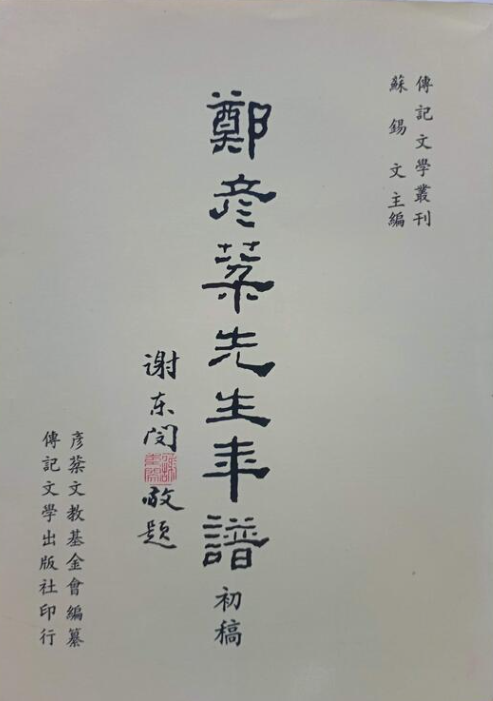 傳記文學叢刊
蘇錫文主編
鄭彥棻先生年譜初稿
謝东閔敬題
彥棻文教基金會編纂
傳記文學出版社印行